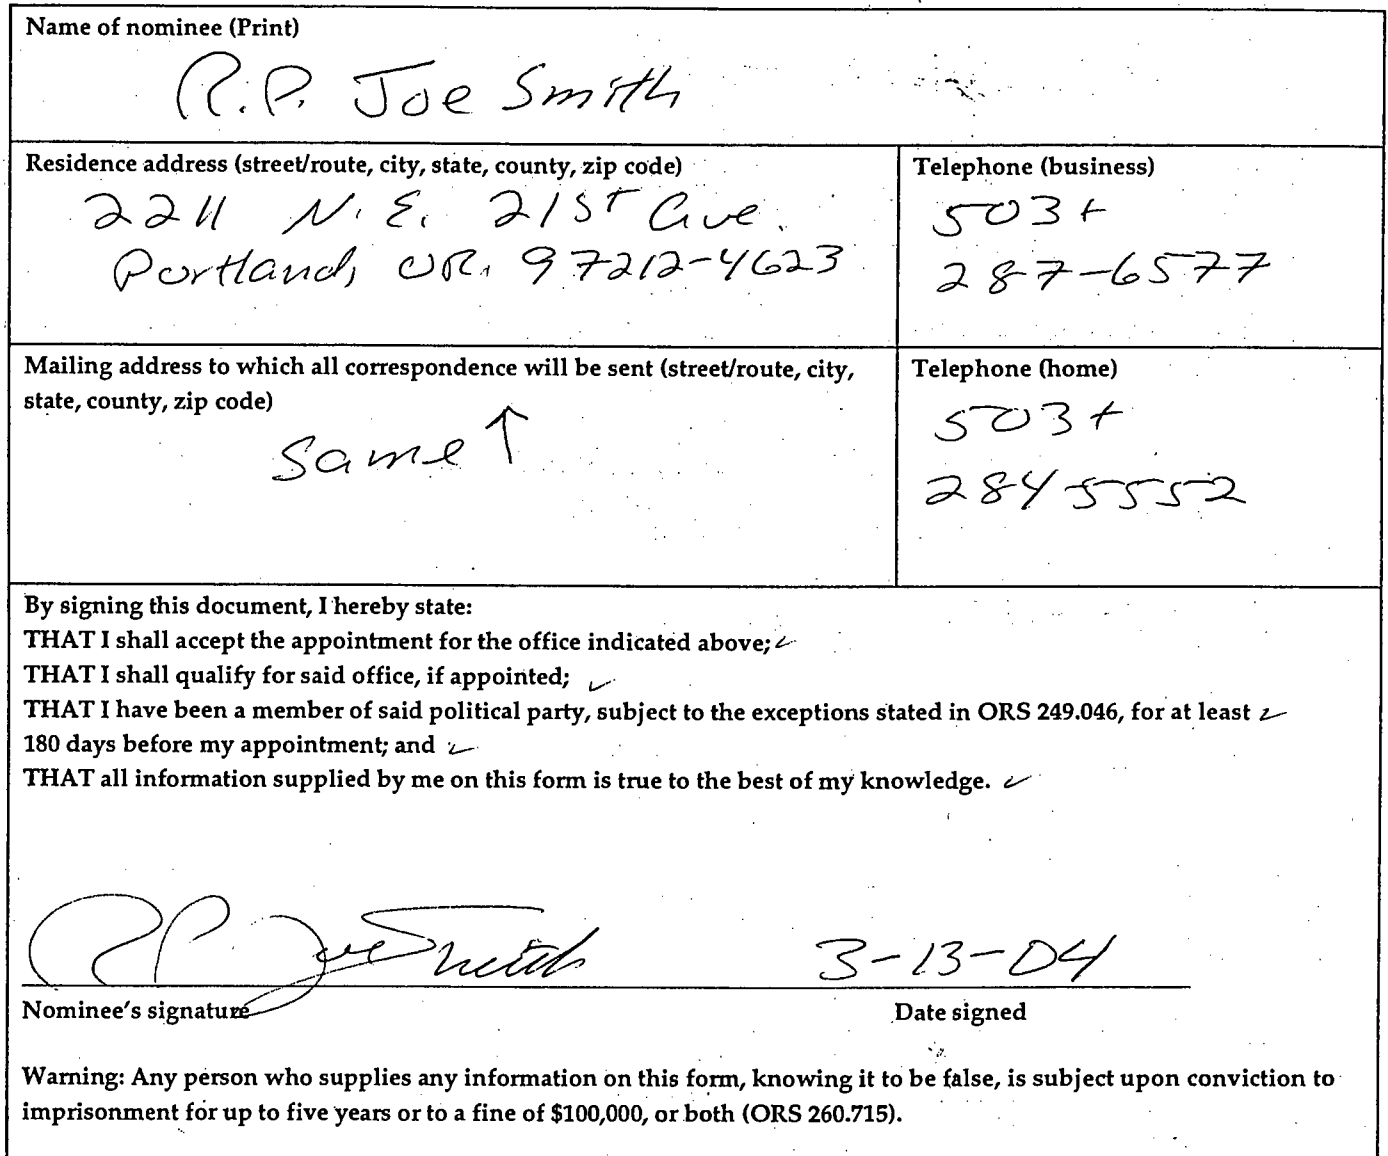 Name of nominee (Print)
R.P. Joe Smith
Residence address (street/route, city, state, county, zip code)
2211 N.E. 21st Ave.
Portland, OR. 97212-4623
Telephone (business)
503+
287-6577
Mailing address to which all correspondence will be sent (street/route, city,
state, county, zip code)
same ↑
Telephone (home)
503+
284 5552
By signing this document, I hereby state:
THAT I shall accept the appointment for the office indicated above; ✓
THAT I shall qualify for said office, if appointed; ✓
THAT I have been a member of said political party, subject to the exceptions stated in ORS 249.046, for at least ✓
180 days before my appointment; and ✓
THAT all information supplied by me on this form is true to the best of my knowledge. ✓
RP. Joe Smith
3-13-04
Nominee's signature
Date signed
Warning: Any person who supplies any information on this form, knowing it to be false, is subject upon conviction to
imprisonment for up to five years or to a fine of $100,000, or both (ORS 260.715).